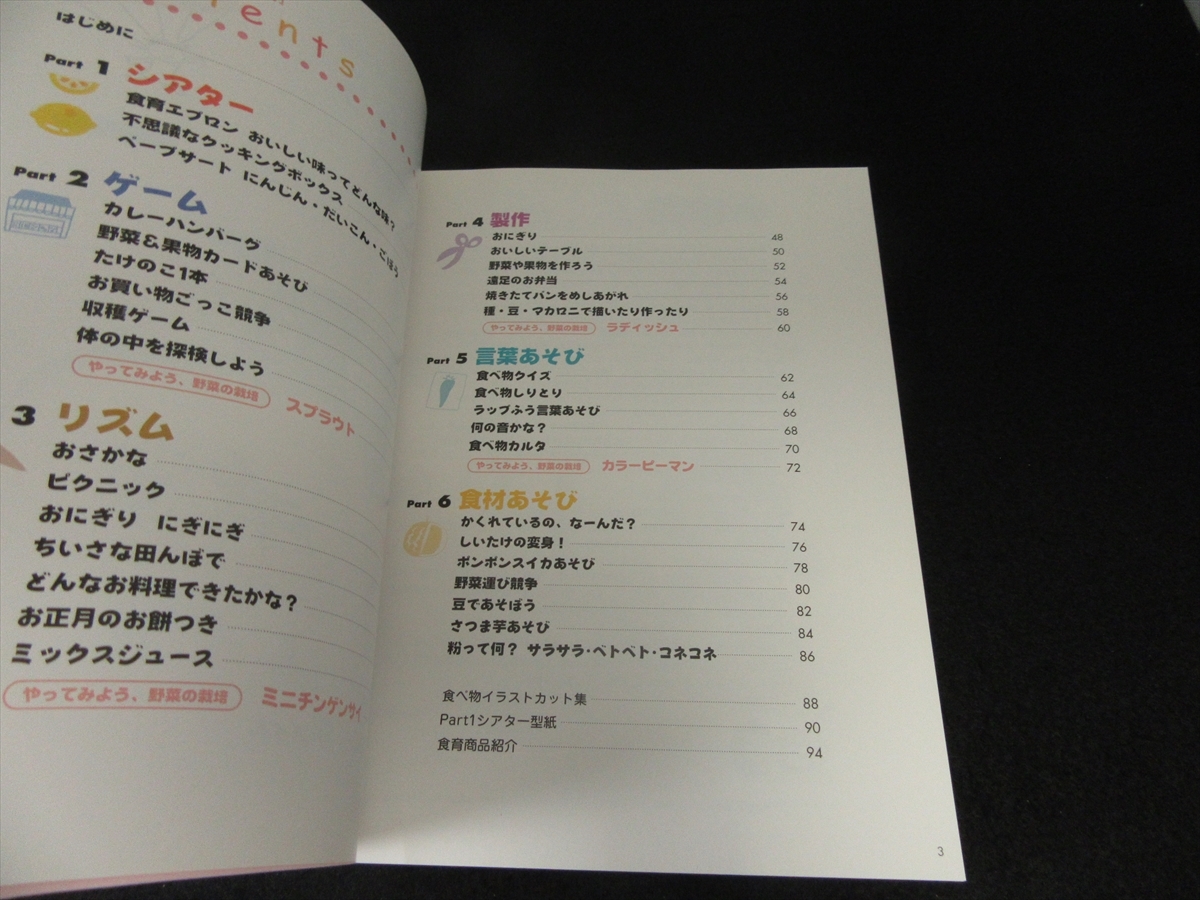 ents
はじめに
Part 1 シアター
食育エプロン おいしい味ってどんな味?
不思議なクッキングボックス
ペープサート にんじん・だいこん・ごぼう
Part 2 ゲーム
カレーハンバーグ
野菜&果物カードあそび
たけのこ1本
お買い物ごっこ競争
収穫ゲーム
体の中を探検しよう
やってみよう、野菜の栽培 スプラウト
3 リズム
おさかな
ピクニック
おにぎり にぎにぎ
ちいさな田んぼで
どんなお料理できたかな?
お正月のお餅つき
ミックスジュース
やってみよう、野菜の栽培 ミニチンゲンサイ
Part 4 製作
おにぎり 48
おいしいテーブル 50
野菜や果物を作ろう 52
遠足のお弁当 54
焼きたてパンをめしあがれ 56
種・豆・マカロニで描いたり作ったり 58
やってみよう、野菜の栽培 ラディッシュ 60
Part 5 言葉あそび
食べ物クイズ 62
食べ物しりとり 64
ラップふう言葉あそび 66
何の音かな? 68
食べ物カルタ 70
やってみよう、野菜の栽培 カラーピーマン 72
Part 6 食材あそび
かくれているの、なーんだ? 74
しいたけの変身! 76
ポンポンスイカあそび 78
野菜運び競争 80
豆であそぼう 82
さつま芋あそび 84
粉って何? サラサラ・ベトベト・コネコネ 86
食べ物イラストカット集 88
Part1シアター型紙 90
食育商品紹介 94
3